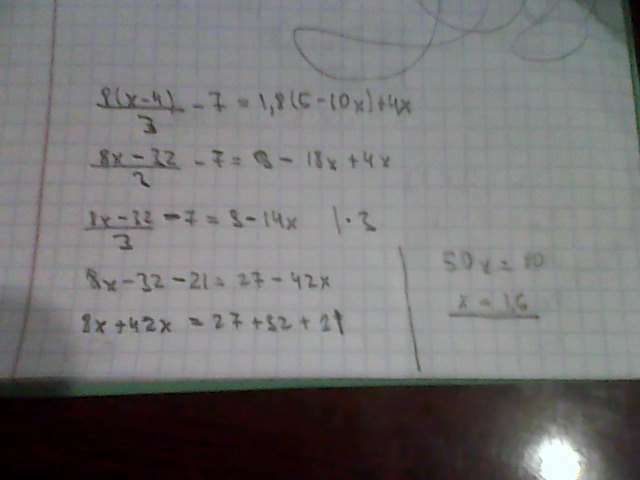 8(x-4)/3 - 7 = 1,8(5-10x)+4x
8x-32/2 - 7 = 9 - 18x+4x
8x-32/3 - 7 = 9-14x |·3
8x-32-21 = 27-42x
8x+42x = 27+32+21
50x = 80
x = 1,6